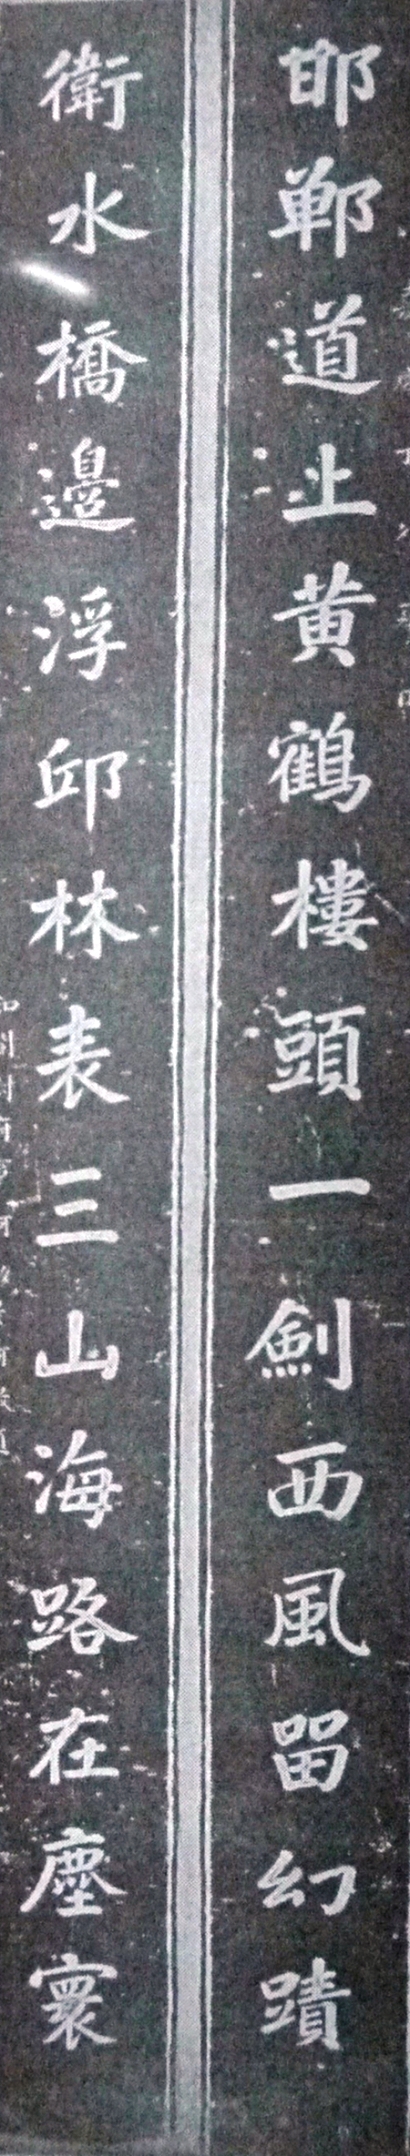 邯鄲道上黄鶴樓頭一劍西風留幻蹟
衛水橋邊浮邱林表三山海路在塵寰